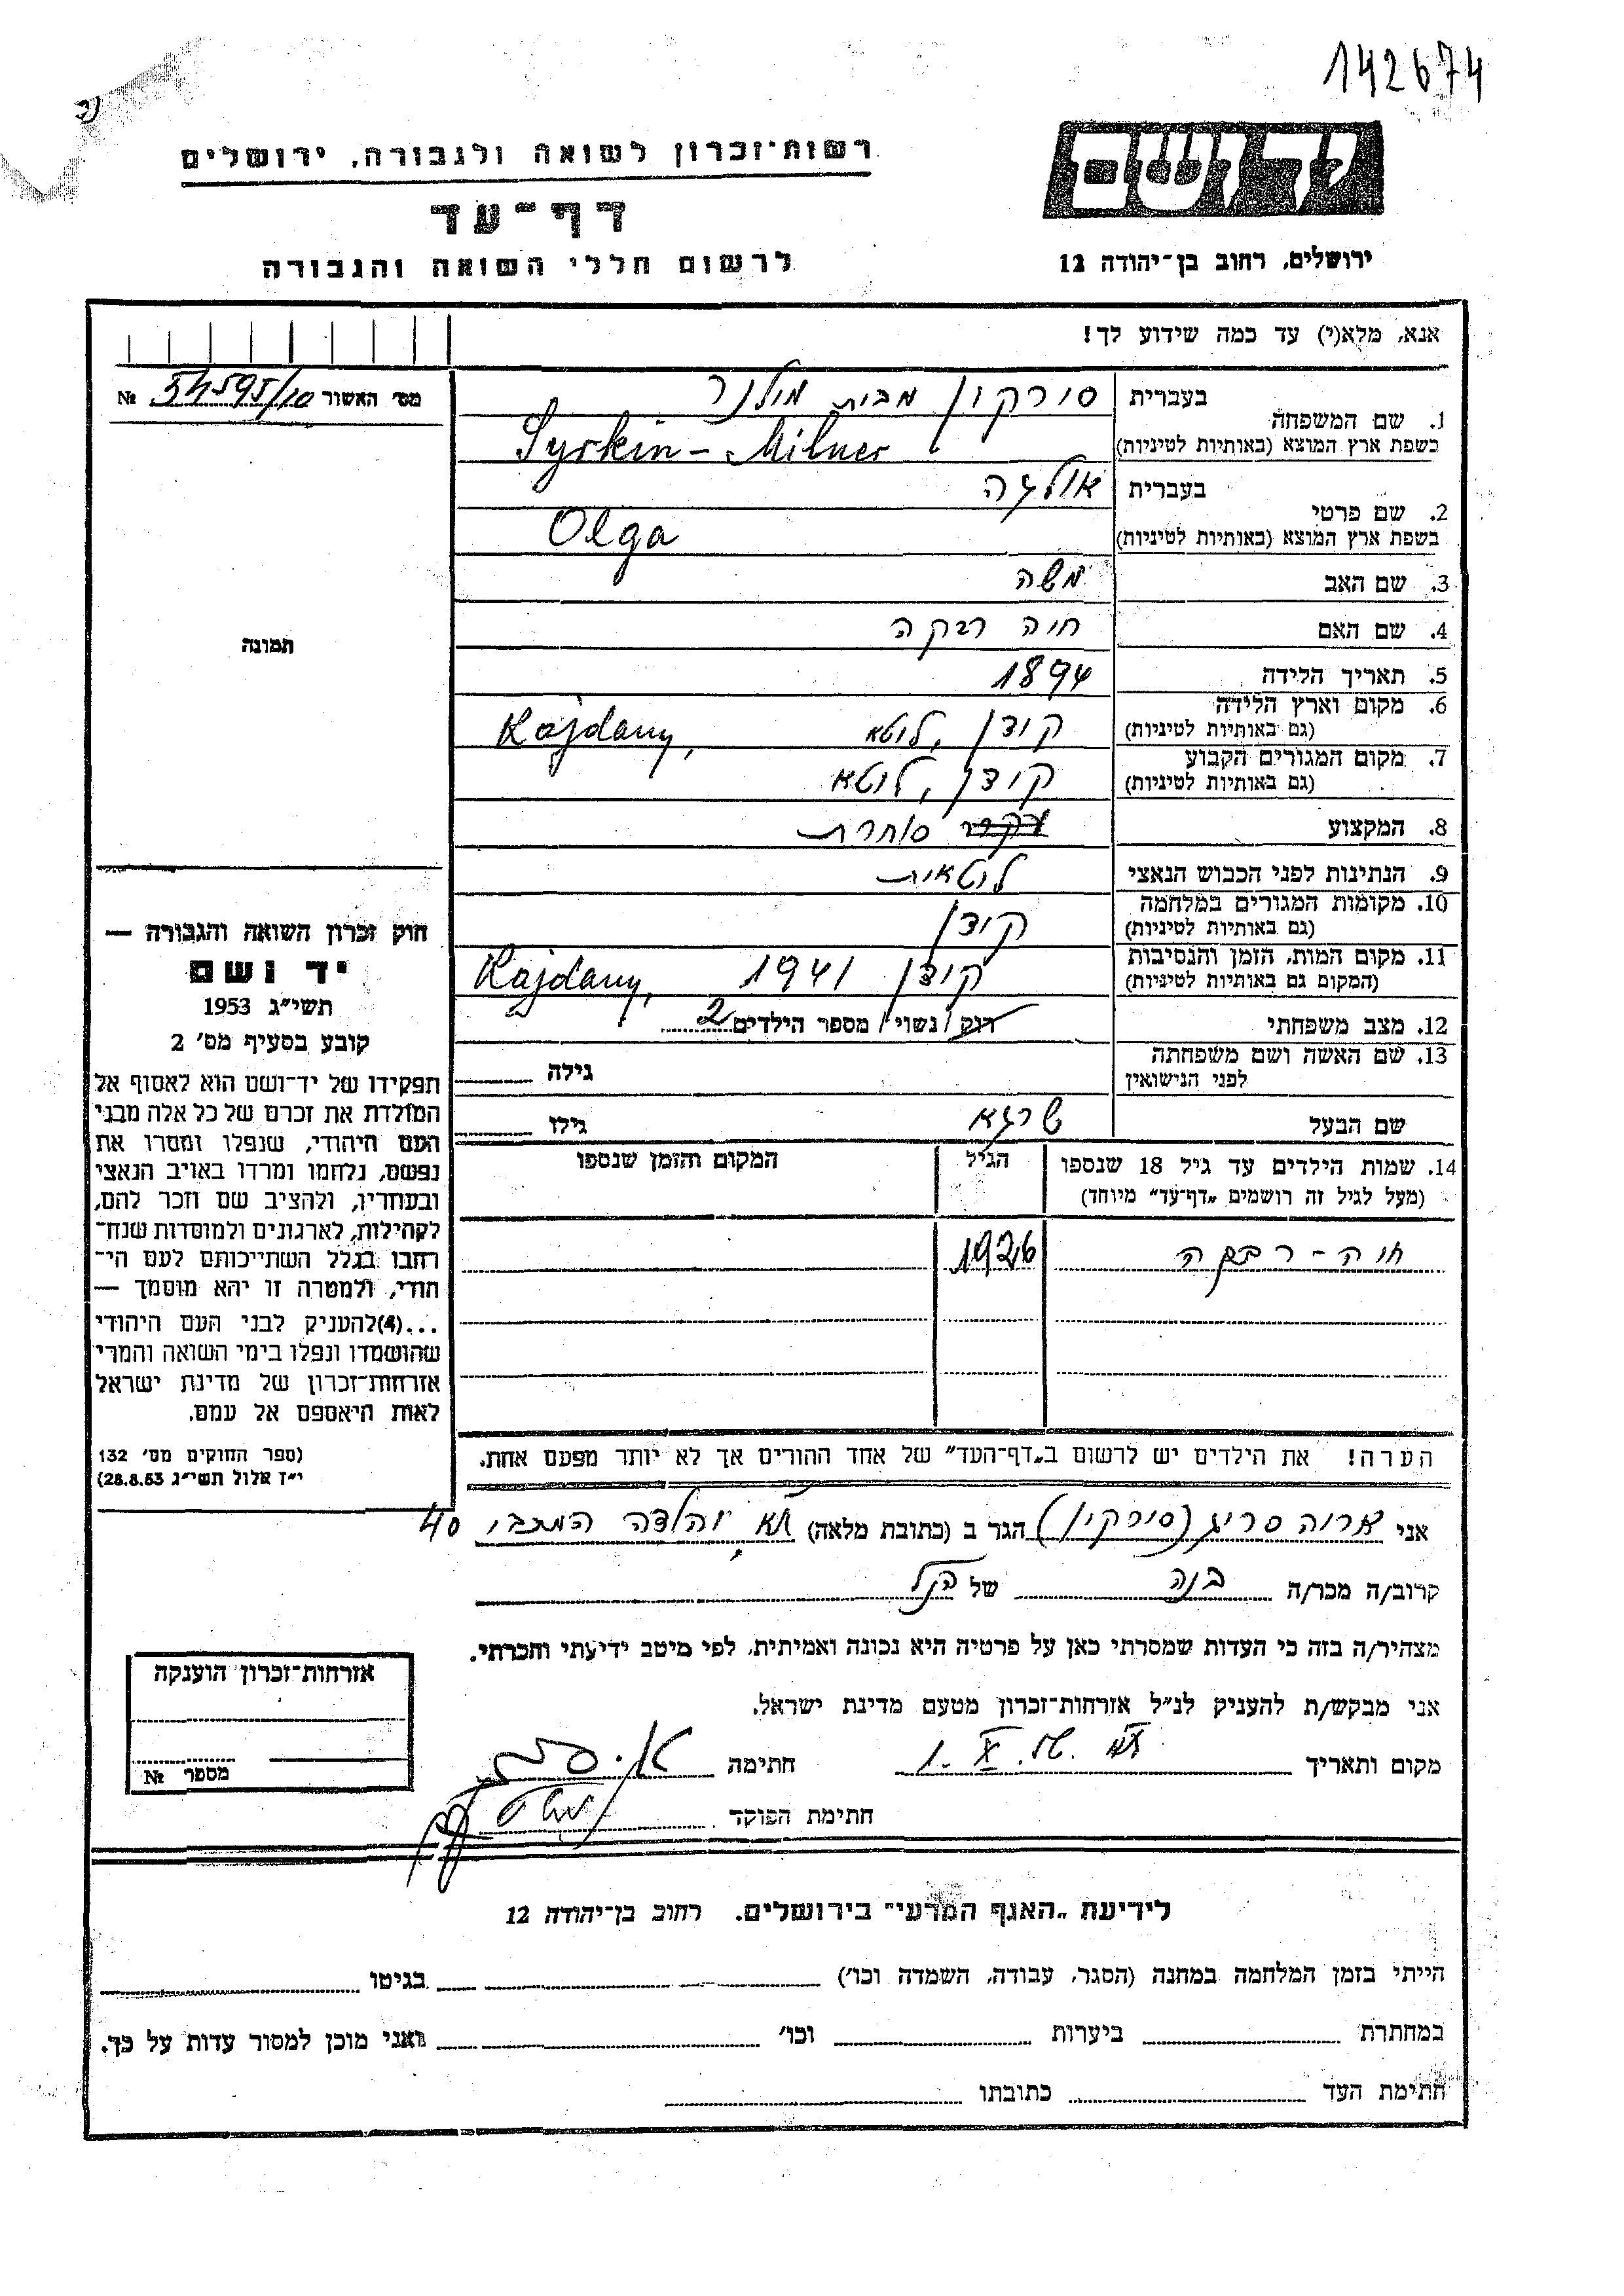 142674
רשות־זכרון לשואה ולגבורה, ירושלים
דף־עד
לרשום חללי השואה והגבורה
ידושם
ירושלים, רחוב בן־יהודה 12
אנא, מלא(י) עד כמה שידוע לך!
מס׳ האשור 54595/10 №
תמונה
1. שם המשפחה
בעברית סירקין מבית מילנר
בשפת ארץ המוצא (באותיות לטיניות) Syrkin - Milner
2. שם פרטי
בעברית אולגה
בשפת ארץ המוצא (באותיות לטיניות) Olga
3. שם האב משה
4. שם האם חיה רבקה
5. תאריך הלידה 1894
6. מקום וארץ הלידה
(גם באותיות לטיניות) קידן, ליטא Kajdany,
7. מקום המגורים הקבוע
(גם באותיות לטיניות) קידן, ליטא
8. המקצוע סוחרת
9. הנתינות לפני הכבוש הנאצי ליטאית
10. מקומות המגורים במלחמה
(גם באותיות לטיניות) קידן
11. מקום המות, הזמן והנסיבות
(המקום גם באותיות לטיניות) קידן 1941 Kajdany,
12. מצב משפחתי רוק / נשוי / מספר הילדים 2
13. שם האשה ושם משפחתה
לפני הנישואין גילה
שם הבעל שרגא גילו
14. שמות הילדים עד גיל 18 שנספו הגיל המקום והזמן שנספו
(מעל לגיל זה רושמים „דף־עד״ מיוחד)
חיה - רבקה 1926
הערה! את הילדים יש לרשום ב„דף־העד״ של אחד ההורים אך לא יותר מפעם אחת.
חוק זכרון השואה והגבורה —
יד ושם
תשי״ג 1953
קובע בסעיף מס׳ 2
תפקידו של יד־ושם הוא לאסוף אל
המולדת את זכרם של כל אלה מבני
העם היהודי, שנפלו ומסרו את
נפשם, נלחמו ומרדו באויב הנאצי
ובעוזריו, ולהציב שם וזכר להם,
לקהילות, לארגונים ולמוסדות שנח־
רחבו בגלל השתייכותם לעם הי־
הודי, ולמטרה זו יהא מוסמך —
...(4) להעניק לבני העם היהודי
שהושמדו ונפלו בימי השואה והמרי
אזרחות־זכרון של מדינת ישראל
לאות היאספם אל עמם.
(ספר החוקים מס׳ 132
י״ז אלול תשי״ג 28.8.53)
אני אריה שריג (סירקין) הגר ב (כתובת מלאה) ת״א יהודה המכבי 40
קרוב/ה מכר/ה בנה של הנ״ל
מצהיר/ה בזה כי העדות שמסרתי כאן על פרטיה היא נכונה ואמיתית, לפי מיטב ידיעתי והכרתי.
אני מבקש/ת להעניק לנ״ל אזרחות־זכרון מטעם מדינת ישראל.
מקום ותאריך חתימה
חתימת הפוקד
אזרחות־זכרון הוענקה
מספר №
לידיעת „האגף המדעי״ בירושלים. רחוב בן־יהודה 12
הייתי בזמן המלחמה במחנה (הסגר, עבודה, השמדה וכו׳) בגיטו
במחתרת ביערות וכו׳ ואני מוכן למסור עדות על כך.
חתימת העד כתובתו